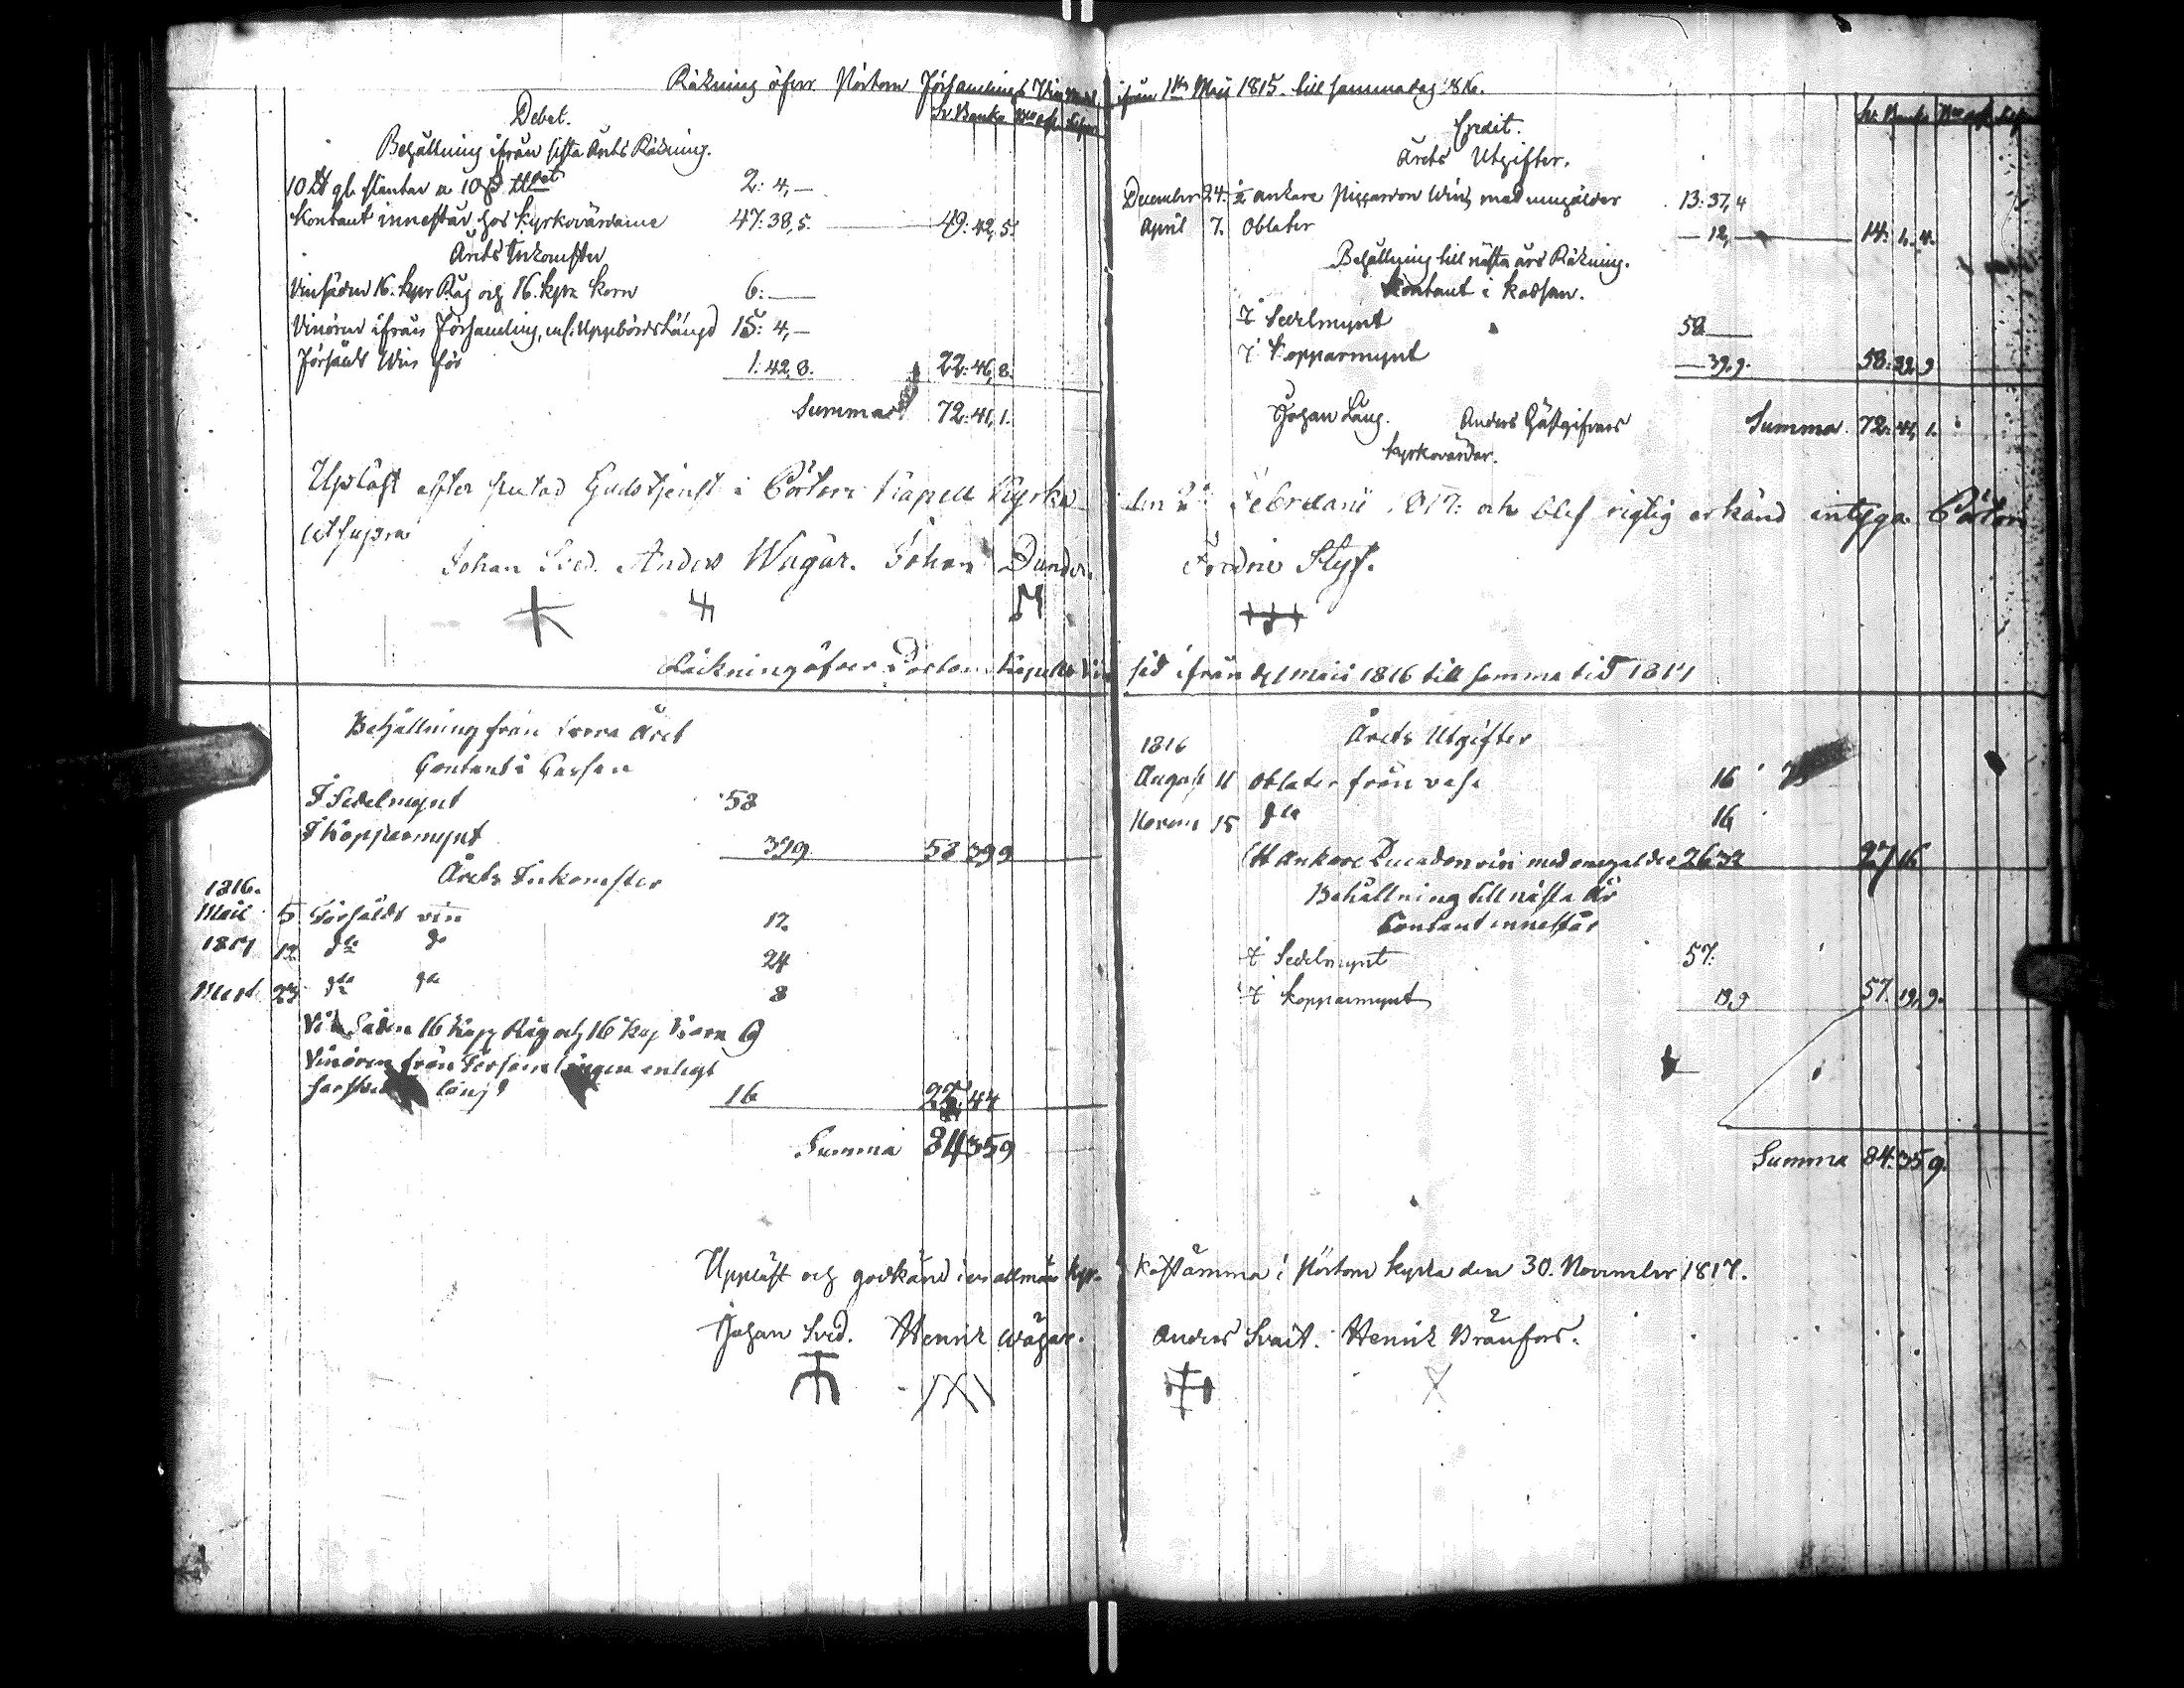 Räkning öfver Pörtom Församlings
Debet.
Sv. Banko
Behållning ifrån sista Årets Räkning.
10 lb gl. slantar a 10 ß 2: 4,—
Kontant innestår hos Kyrkovärdarne 47: 38, 5. 49: 42, 5.
Årets Inkomster
Vinsäden 16. kpr Råg och 16. kpr Korn 6: —
Vinören ifrån Församling, enl. Uppbördslängd 15: 4,—
Försåldt Win för 1: 42, 8. 22: 46, 8.
Summa 72: 41, 1.
ifrån 1sta Maji 1815. till samma dag 1816.
Credit.
Årets Utgifter.
December 24. ½ ankare Win, med omgälder 13: 37, 4
April 7. Oblater — 12, — 14: 1. 4.
Behållning till nästa års Räkning.
Kontant i kassan.
I Sedelmynt 58 —
I Kopparmynt — 39, 9. 58: 39, 9
Johan Lång. Anders Gästgifvars Summa 72: 41, 1.
Kyrkovärdar.
Upläst efter slutad Gudstjenst i Pörtom Kapell Kyrka den 2 Februarii 1817: och blef rigtig erkänd intyga Pörtom
ut supra
Johan Sved. Anders Wägar. Johan Dunder. Fredric Styf.
Räkning öfver Pörtom Kapells ifrån d 1 Maii 1816 till samma tid 1817
Behållning från förra Året
Contant i Cassan
I Sedelmynt 58
I Kopparmynt 39 9 58 39 9
Årets Inkomster
1816.
Maii 5 Försåldt vin 12
1817 12 do do 24
23 do do 8
Vin Säden 16 Kapp Råg och 16 Kap Korn 6
Vinören från Församlingen enligt
längd 16 22 44
Summa 84 35 9
1816 Årets Utgifter
August 11 Oblater från Vasa 16
Novem 15 do 16
Ett Ankare vin med omgälder 26 32 27 16
Behållning till nästa År
Contant innestår
I Sedelmynt 57.
I Kopparmynt 19, 9 57. 19, 9.
Summa 84. 35 9.
Uppläst och godkänd i en allmän kyrkostämma i Pörtom kyrka den 30. November 1817.
Johan Sved. Henrik Wägar. Anders Svait. Henrik Brånfors.